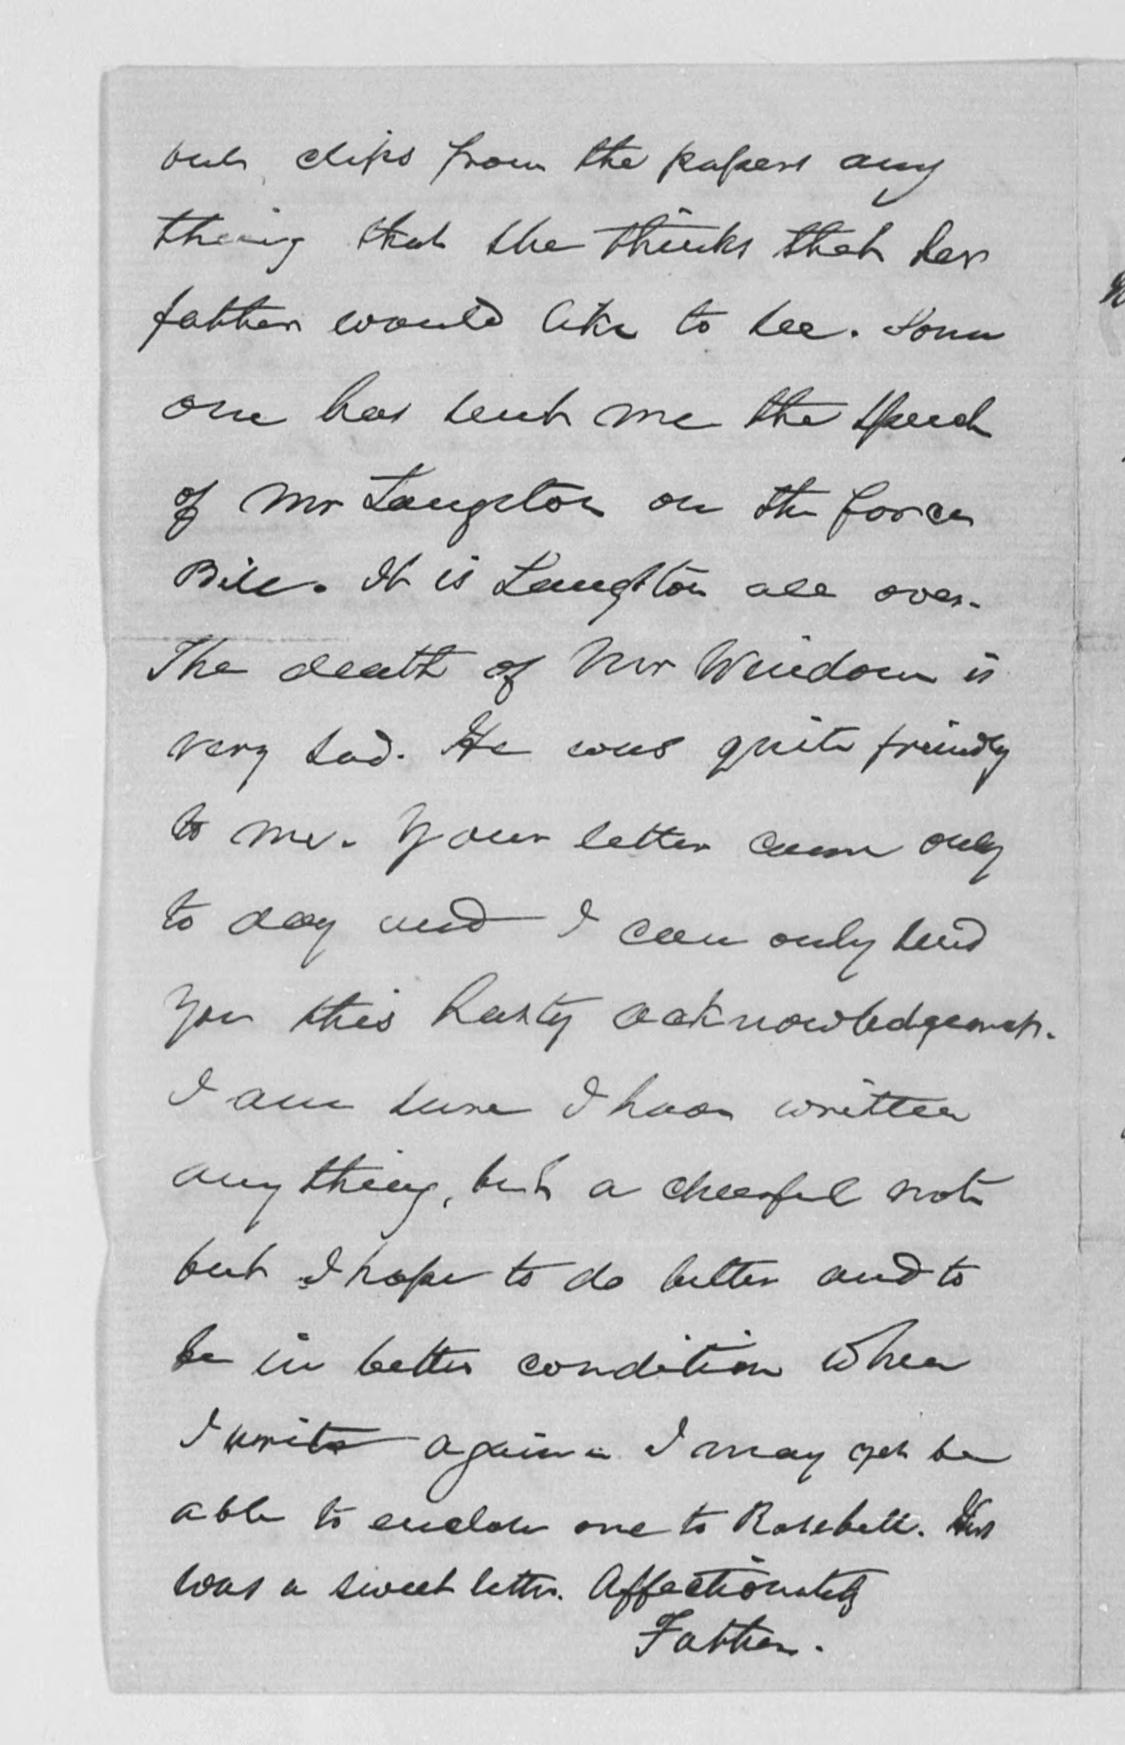 out clips from the papers any
thing that she thinks that her
father would like to see. Some
one has sent me the speech
of Mr Langston on the force
Bill. It is Langston all over.
The death of Mr Windom is
very sad. He was quite friendly
to me. Your letter came only
to day and I can only send
you this hasty acknowledgement.
I am sure I have written
any thing, but a cheerful note
but I hope to do better and to
be in better condition when
I write again. I may yet be
able to enclose one to Rosebell. Hers
was a sweet letter. Affectionately
Father.